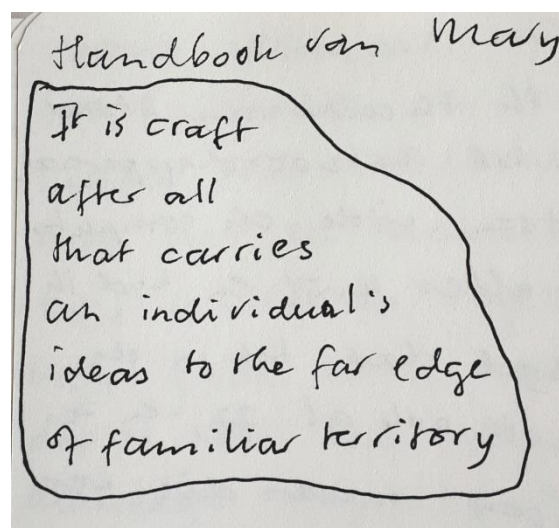 Handbook van Mary
It is craft
after all
that carries
an individual's
ideas to the far edge
of familiar territory